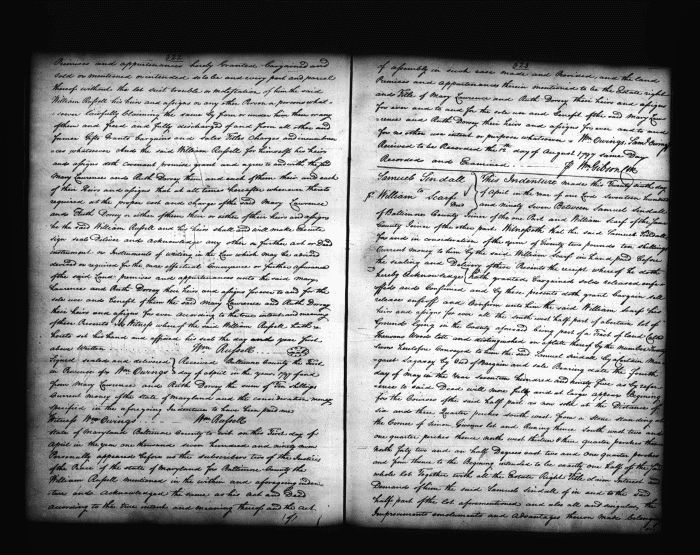 522
Premises and appurtenances hereby Granted Bargained and
sold or mentioned or intended so to be and every part and parcel
thereof without the let suit trouble or molestation of him the said
William Russell his heirs and assigns or any other Person or persons what-
soever lawfully Claiming the same by from or under him them or any
of them and freed and fully discharged of and from all other and
former Gifts Grants bargains and sales Titles Charges and incumbran-
ces whatsoever And the said William Russell for himself his heirs
and assigns doth covenant promise grant and agree to and with the said
Mary Laurence and Ruth Dorsey their and each of them their and each
of their Heirs and assigns that at all times hereafter whenever thereto
required at the proper cost and charge of the said Mary Laurence
and Ruth Dorsey or either of them their or either of their heirs and assigns
he the said William Russell and his heirs shall and will make Execute
sign seal Deliver and acknowledge any other or further act or Deed
instrument or instruments of writing in the Law which may be advised
devised or required for the more effectual Conveyance or further assurance
of the said Land premises and appurtenances unto the said Mary
Laurence and Ruth Dorsey their heirs and assigns forever to and for the
sole use and benefit of them the said Mary Laurence and Ruth Dorsey
their heirs and assigns for ever According to the true intent and meaning
of these Presents In Witness whereof the said William Russell hath
hereto set his hand and affixed his seal the day and year first
above Written Wm Russell
Signed sealed and delivered Received Baltimore County the first
in Presence of Wm Owings day of april in the year 1797 of and
from Mary Laurence and Ruth Dorsey the sum of Five shillings
Current money of the state of Maryland and the consideration money
specified in the aforegoing Indenture to have been paid me
Witness Wm Owings Wm Russell
State of Maryland Baltimore County to wit on this First day of
April in the year one thousand seven hundred and ninety seven
Personally appeared before us the subscribers two of the Justices
of the Peace of the state of Maryland for Baltimore County the
William Russell mentioned in the within and aforegoing inden-
ture and Acknowledged the same as his Act and Deed
according to the true intent and meaning thereof and the act
of
523
of assembly in such case made and Provided and the land
Premises and appurtenances therein mentioned to be the Estate right
and title of Mary Laurence and Ruth Dorsey their heirs and assigns
for ever and to and for the sole use and benefit of the said Mary Law-
rence and Ruth Dorsey their heirs and assigns for ever and to and
for no other use intent or purpose whatsoever Wm Owings Saml Owings
Received to be Recorded the day of August 1797 same Day
Recorded and Examined Wm Gibson Clk
Samuel Sindall This Indenture made this Twenty sixth day
to of April in the year of our Lord seventeen hundred
William Scarf and ninety seven Between Samuel Sindall
of Baltimore County of the one Part and William Scarf of the same
County of the other part Witnesseth that the said Samuel Sindall
for and in consideration of the sum of Twenty two pounds ten shillings
Current money to him by the said William Scarf in hand paid before
the sealing and Delivery of these Presents the receipt whereof he doth
hereby acknowledge hath granted Bargained sold released
and Confirmed and by these presents doth grant bargain sell
release and Confirm unto him the said William Scarf his
heirs and assigns for ever all the south west half part of a lot of
Ground Lying in the county aforesaid being part of a Tract of land Called
conveyed to him the said Samuel Sindall by
by Deed of Bargain and sale Bearing date the Fourth
day of May in the year seventeen hundred and ninety five as by refer-
ence to said Deed will more fully and at large appear Beginning
for the Courses of the said half part at the Distance of
six and three Quarter perches south west from a Stone standing at
the Corner of lot and Running thence south west
one quarter perches thence north west three quarter perches thence
North fifty two and an half Degrees east two and one quarter perches
and from thence to the Beginning intended to be exactly one half of the said
whole lot Together with all the Estate Right Title claim Interest and
Demands of him the said Samuel Sindall of in and to the said
half part of the lot aforementioned and also all and singular the
Improvements emoluments and advantages thereon made belonging